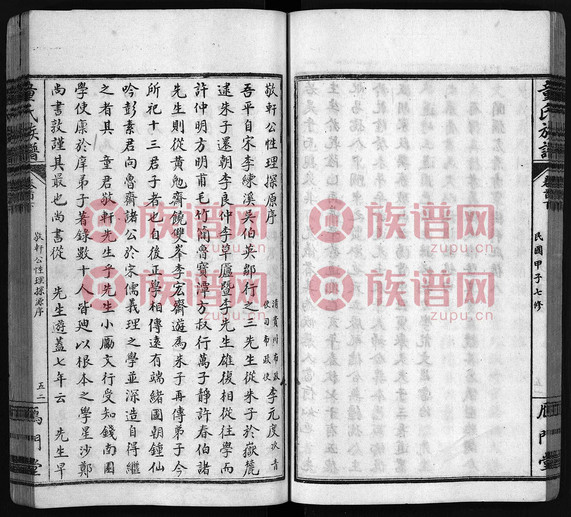 敬軒公性理探源序
清賞布政
使司布政使
李元度次青
吾平自宋李練溪吳伯英鄒行之三先生從朱子於嶽麓
逮朱子還朝李良仲李草廬暨李先生雄復相從往學而
許仲明方明甫毛竹簡魯寶潭方叔行萬子靜許春伯諸
先生則從黃勉齋饒雙峯李宏齋遊為朱子再傳弟子今
所祀十三君子者也自後正學相傳遠有端緒國朝鍾仙
吟彭素君向魯齋諸公於宋儒義理之學並深造自得繼
之者其 童君敬軒先生乎先生小勵文行受知錢南園
學使康於庠弟子著錄數十人皆迪以根本之學星沙鄭
尚書敦謹其最也尚書從 先生遊蓋七年云 先生早
童氏族譜
敬軒公性理探源序
五二
鴈門堂
童氏族譜
民國甲子七修
鴈門堂
族谱网
zupu.cn
族谱网
zupu.cn
族谱网
zupu.cn
族谱网
zupu.cn